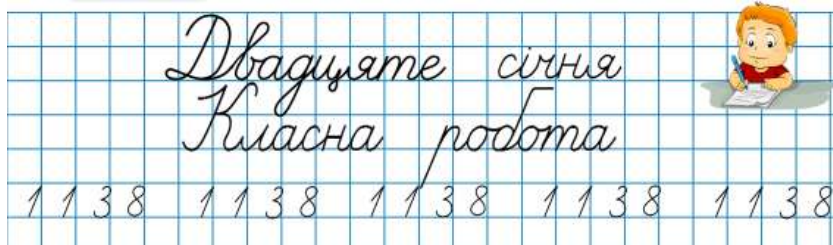 Двадцяте січня
Класна робота
1 1 3 8 1 1 3 8 1 1 3 8 1 1 3 8 1 1 3 8